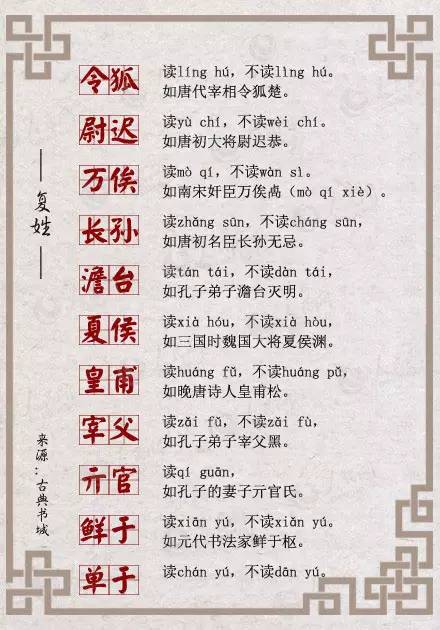 复姓
令狐
读líng hú，不读lìng hú。
如唐代宰相令狐楚。
尉迟
读yù chí，不读wèi chí。
如唐初大将尉迟恭。
万俟
读mò qí，不读wàn sì。
如南宋奸臣万俟卨（mò qí xiè）。
长孙
读zhǎng sūn，不读cháng sūn，
如唐初名臣长孙无忌。
澹台
读tán tái，不读dàn tái，
如孔子弟子澹台灭明。
夏侯
读xià hóu，不读xià hòu，
如三国时魏国大将夏侯渊。
皇甫
读huáng fǔ，不读huáng pǔ，
如晚唐诗人皇甫松。
宰父
读zǎi fǔ，不读zǎi fù，
如孔子弟子宰父黑。
亓官
读qí guān，
如孔子的妻子亓官氏。
鲜于
读xiān yú，不读xiǎn yú。
如元代书法家鲜于枢。
单于
读chán yú，不读dān yú。
来源：古典书城